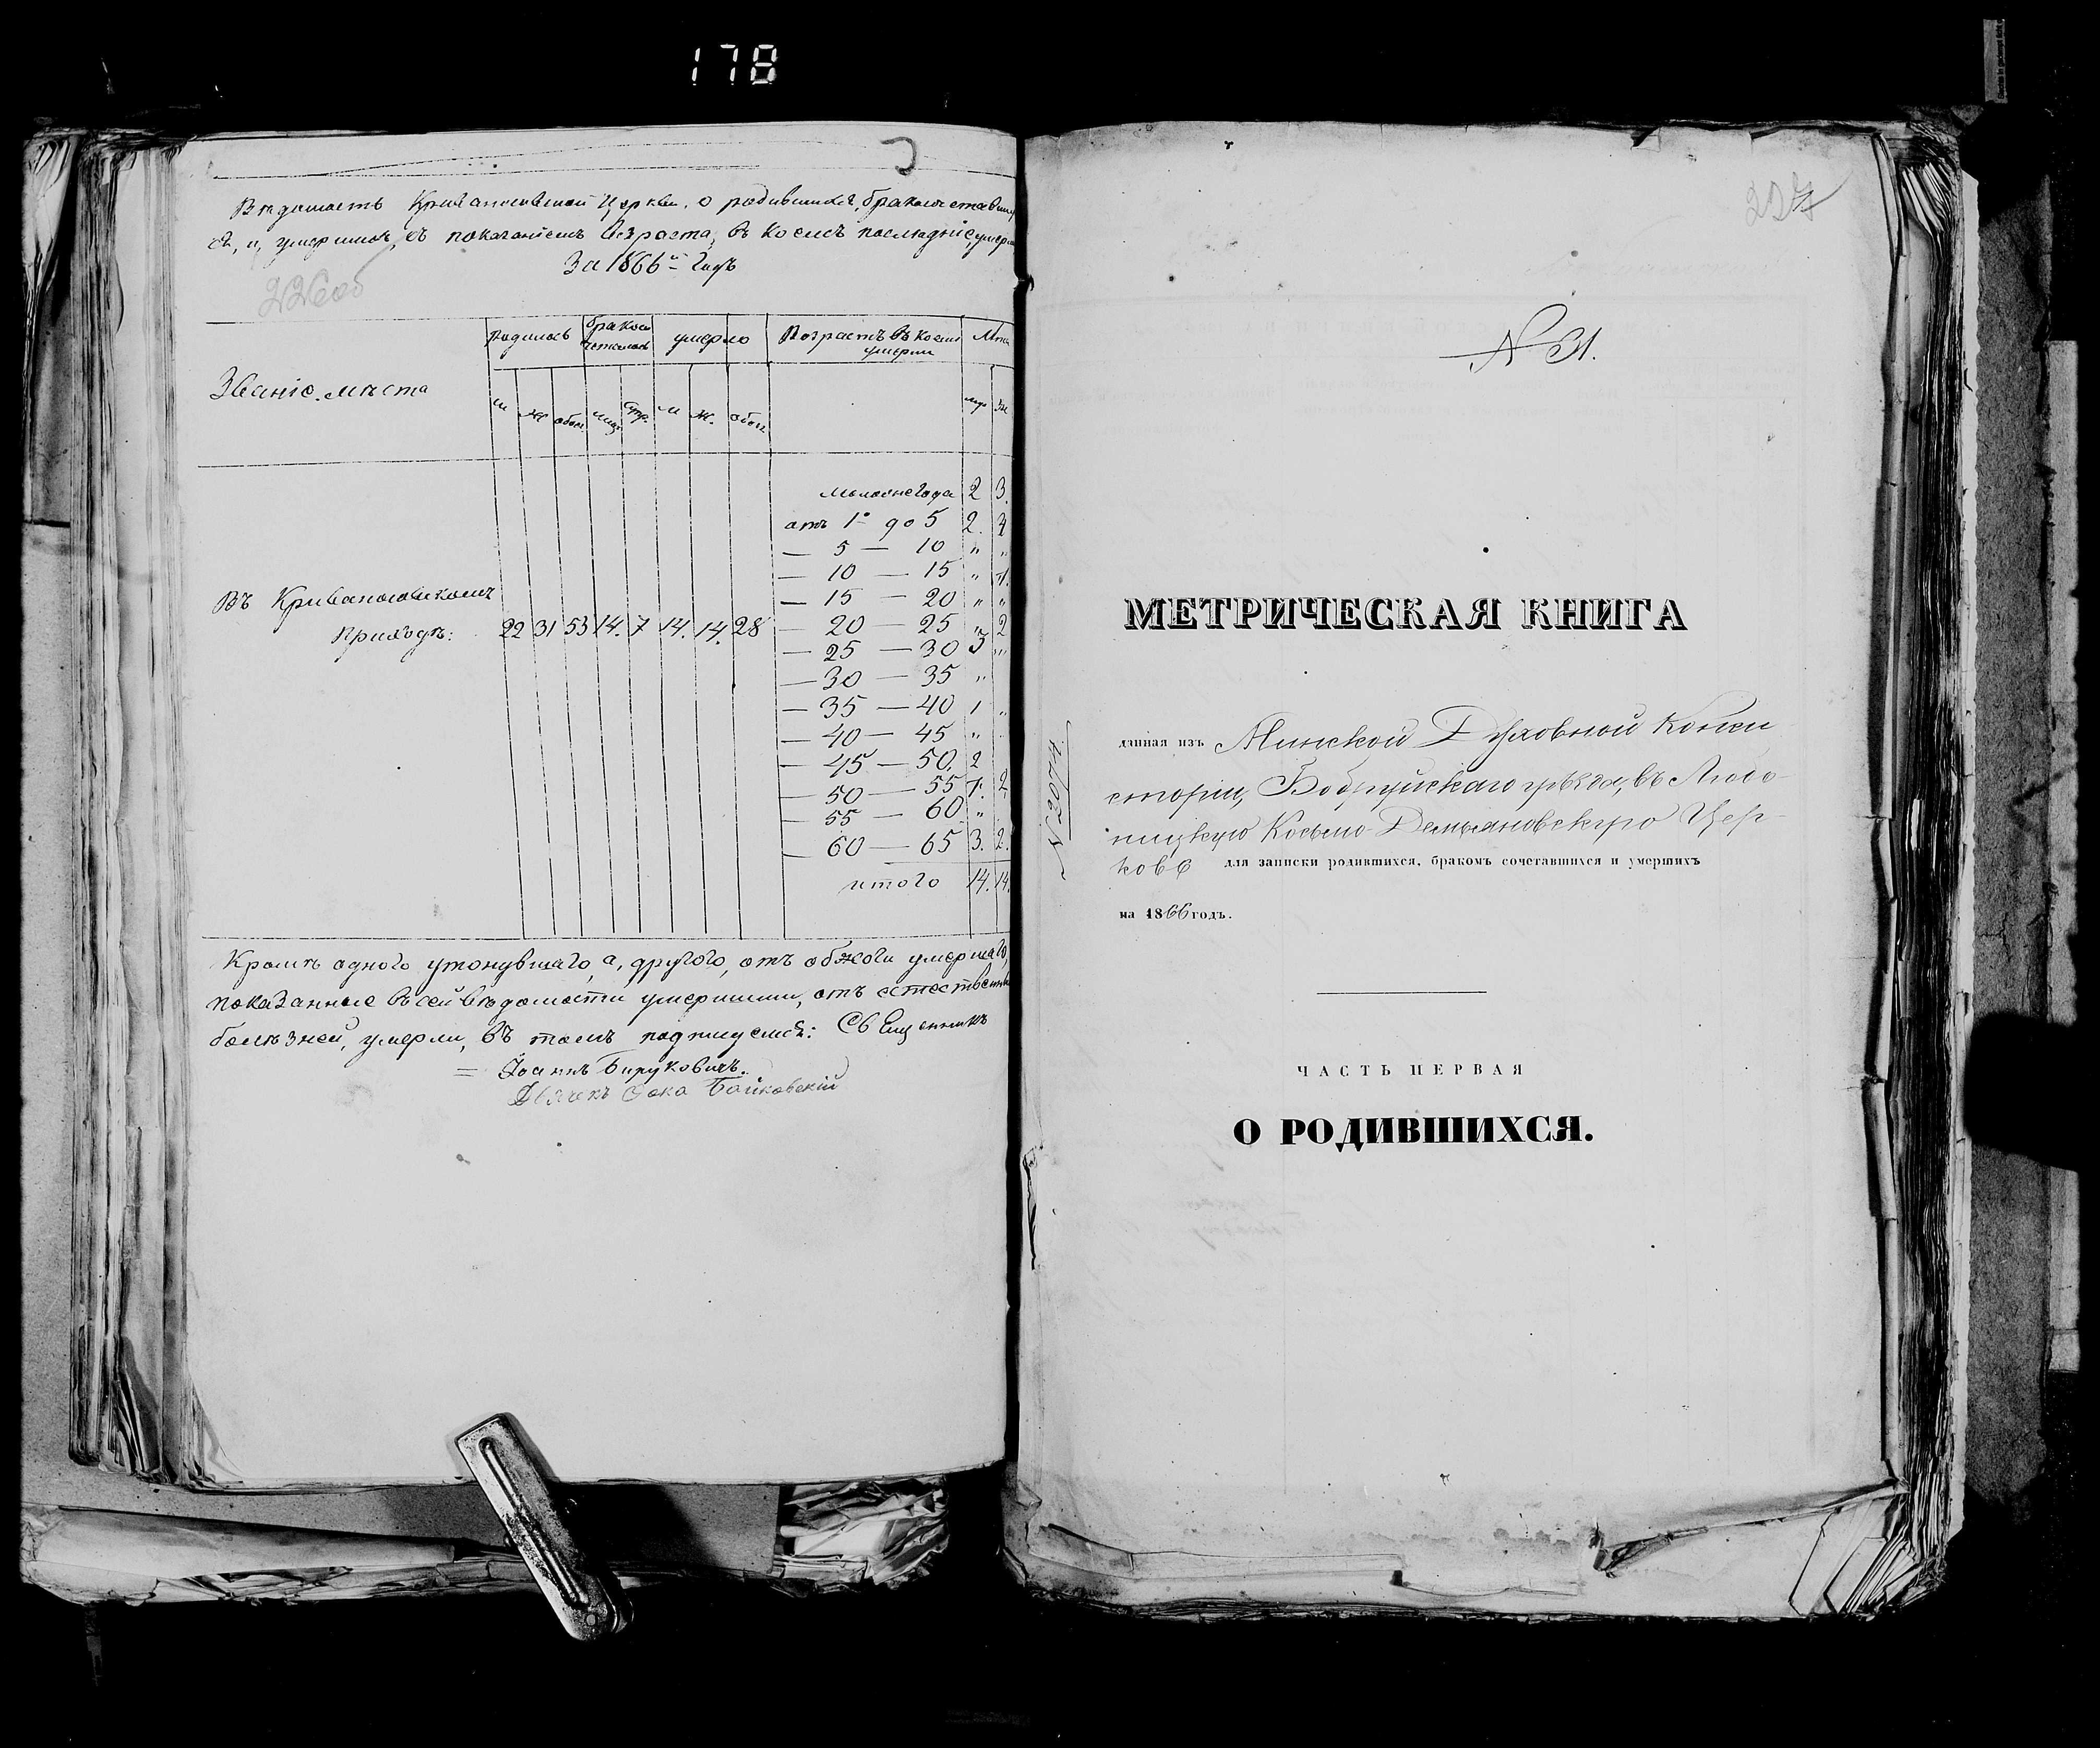 178
Вѣдомость Кривоносовской Церкви, о родившихся, бракосочетавших
ся, и, умершихъ, съ показаніемъ возраста, въ коемъ послѣдніе, умерли
За 1866й Годъ
226 об
Званіе. мѣста
родилось
бракосо
четалось
умерло
Возрастъ въ коемъ
умерли
Лѣта
м ж. обоего м ж. обоего
муж жен
моложе года 2 3.
отъ 1° до 5 2. 4
— 5 — 10 „ „
— 10 — 15 „ 1.
— 15 — 20 „ „
— 20 — 25 „ 2
— 25 — 30 3 „
— 30 — 35 „
— 35 — 40 1 „
— 40 — 45 „
— 45 — 50. 2
— 50 — 55 1. 2
— 55 — 60 „
— 60 — 65 3. 2.
итого 14. 14.
Въ Кривоносовскомъ
Приходѣ: 22 31 53 14. 7 14. 14. 28
Кромѣ одного утонувшаго, а, другого, отъ обжоги умершаго,
показанные въ сей вѣдомости умершими, отъ естественныхъ
болѣзней, умерли, въ томъ подпишемся: Священникъ
= Іоаннъ Бируковичъ.
Дьячекъ Фока Байковскій
227
№ 31.
МЕТРИЧЕСКАЯ КНИГА
данная изъ Минской Духовной Конси
сторіи, Бобруйскаго уѣзда, въ Любо
ницкую Косьмо-Демьяновскую Цер-
ковь для записки родившихся, бракомъ сочетавшихся и умершихъ
на 1866 годъ.
ЧАСТЬ ПЕРВАЯ
О РОДИВШИХСЯ.